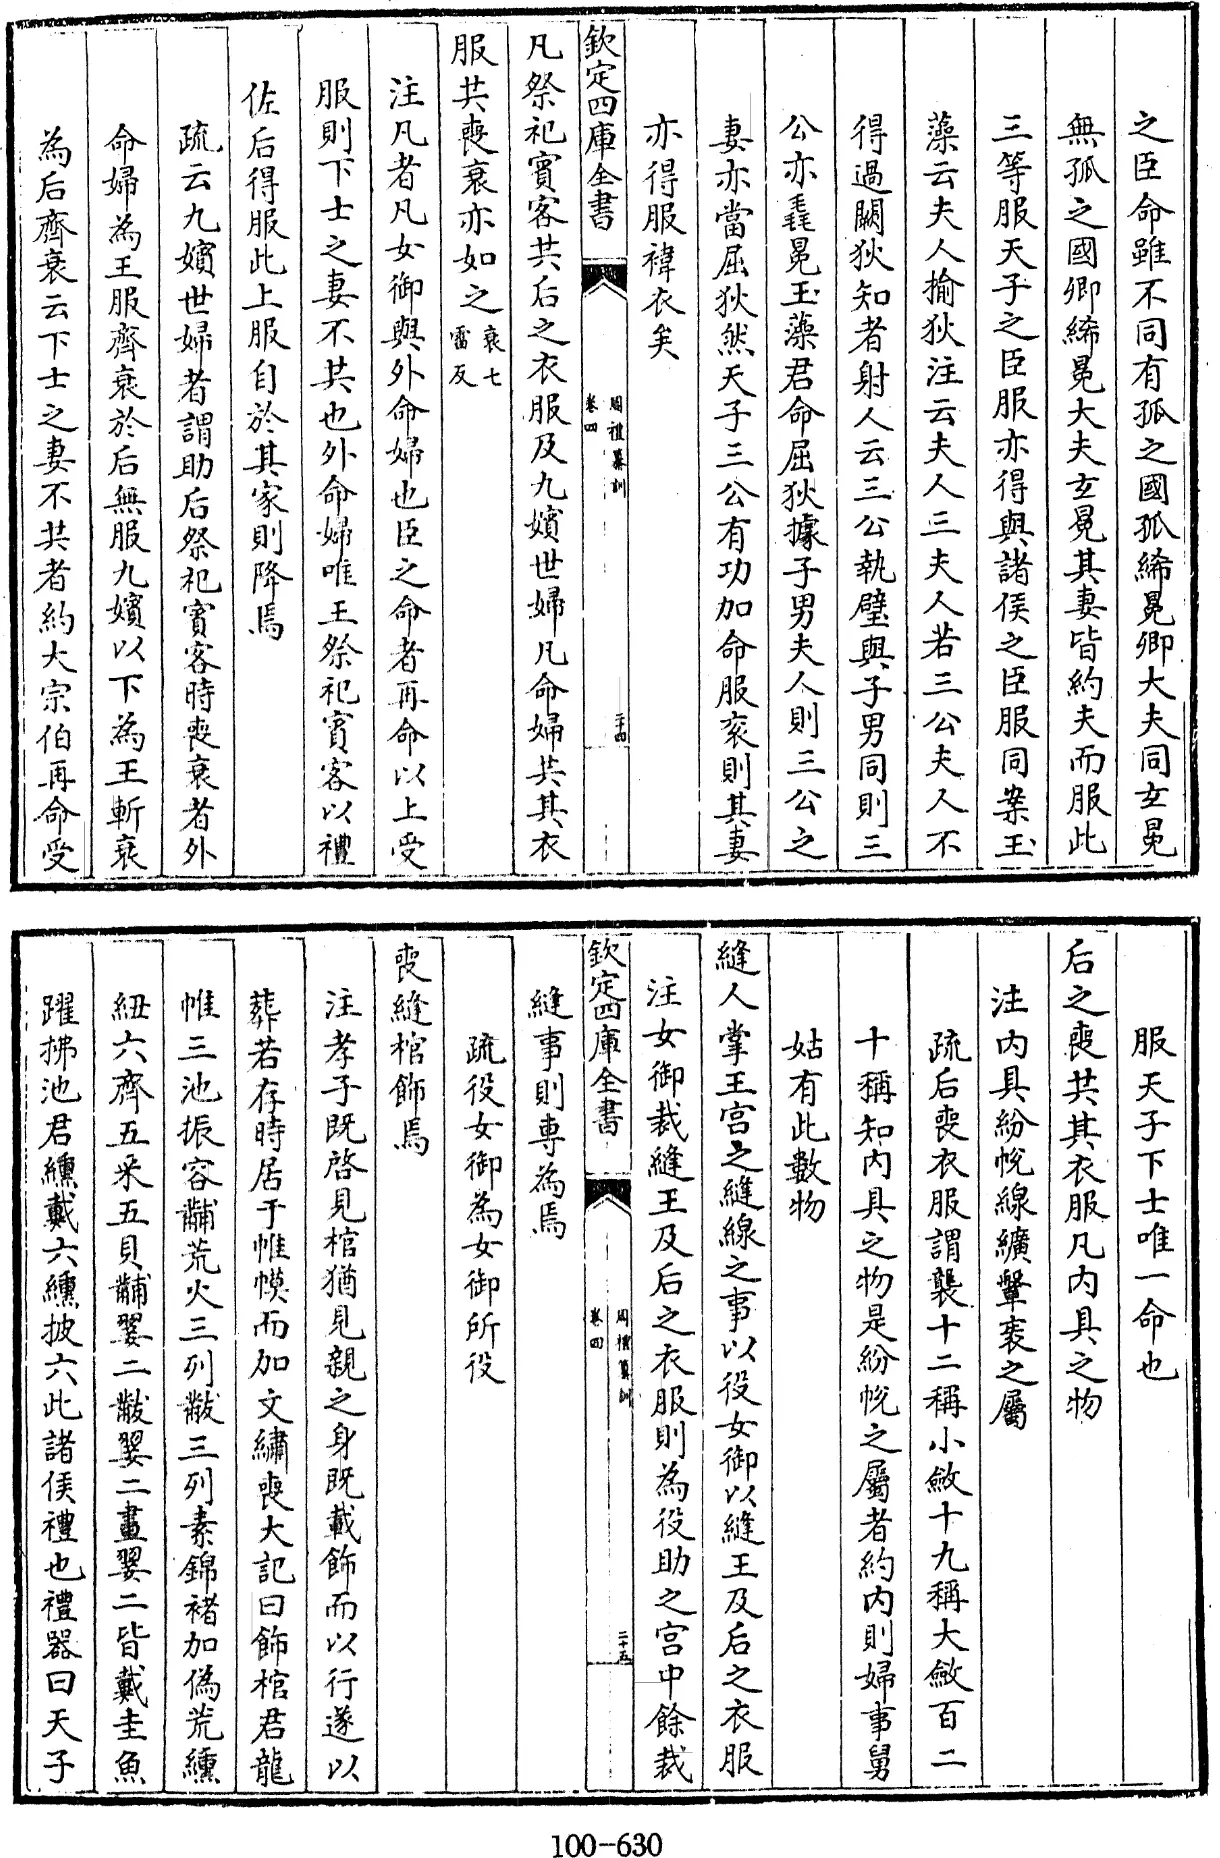 之臣命雖不同有孤之國孤絺冕卿大夫同玄冕
無孤之國卿絺冕大夫玄冕其妻皆約夫而服此
三等服天子之臣服亦得與諸侯之臣服同案玉
藻云夫人揄狄注云夫人三夫人若三公夫人不
得過闕狄知者射人云三公執璧與子男同則三
公亦毳冕玉藻君命屈狄據子男夫人則三公之
妻亦當屈狄然天子三公有功加命服衮則其妻
亦得服褘衣矣
欽定四庫全書
周禮纂訓
卷四
二十四
凡祭祀賓客共后之衣服及九嬪世婦凡命婦共其衣
服共喪衰亦如之衰七雷反
注凡者凡女御與外命婦也臣之命者再命以上受
服則下士之妻不共也外命婦唯王祭祀賓客以禮
佐后得服此上服自於其家則降焉
疏云九嬪世婦者謂助后祭祀賓客時喪衰者外
命婦為王服齊衰於后無服九嬪以下為王斬衰
為后齊衰云下士之妻不共者約大宗伯再命受
服天子下士唯一命也
后之喪共其衣服凡内具之物
注内具紛帨線纊鞶袠之屬
疏后喪衣服謂襲十二稱小斂十九稱大斂百二
十稱知内具之物是紛帨之屬者約内則婦事舅
姑有此數物
縫人掌王宫之縫線之事以役女御以縫王及后之衣服
注女御裁縫王及后之衣服則為役助之宫中餘裁
欽定四庫全書
周禮纂訓
卷四
二十五
縫事則專為焉
疏役女御為女御所役
喪縫棺飾焉
注孝子既啓見棺猶見親之身既載飾而以行遂以
葬若存時居于帷幙而加文繡喪大記曰飾棺君龍
帷三池振容黼荒火三列黻三列素錦褚加偽荒纁
紐六齊五采五貝黼翣二黻翣二畫翣二皆戴圭魚
躍拂池君纁戴六纁披六此諸侯禮也禮器曰天子
100-630